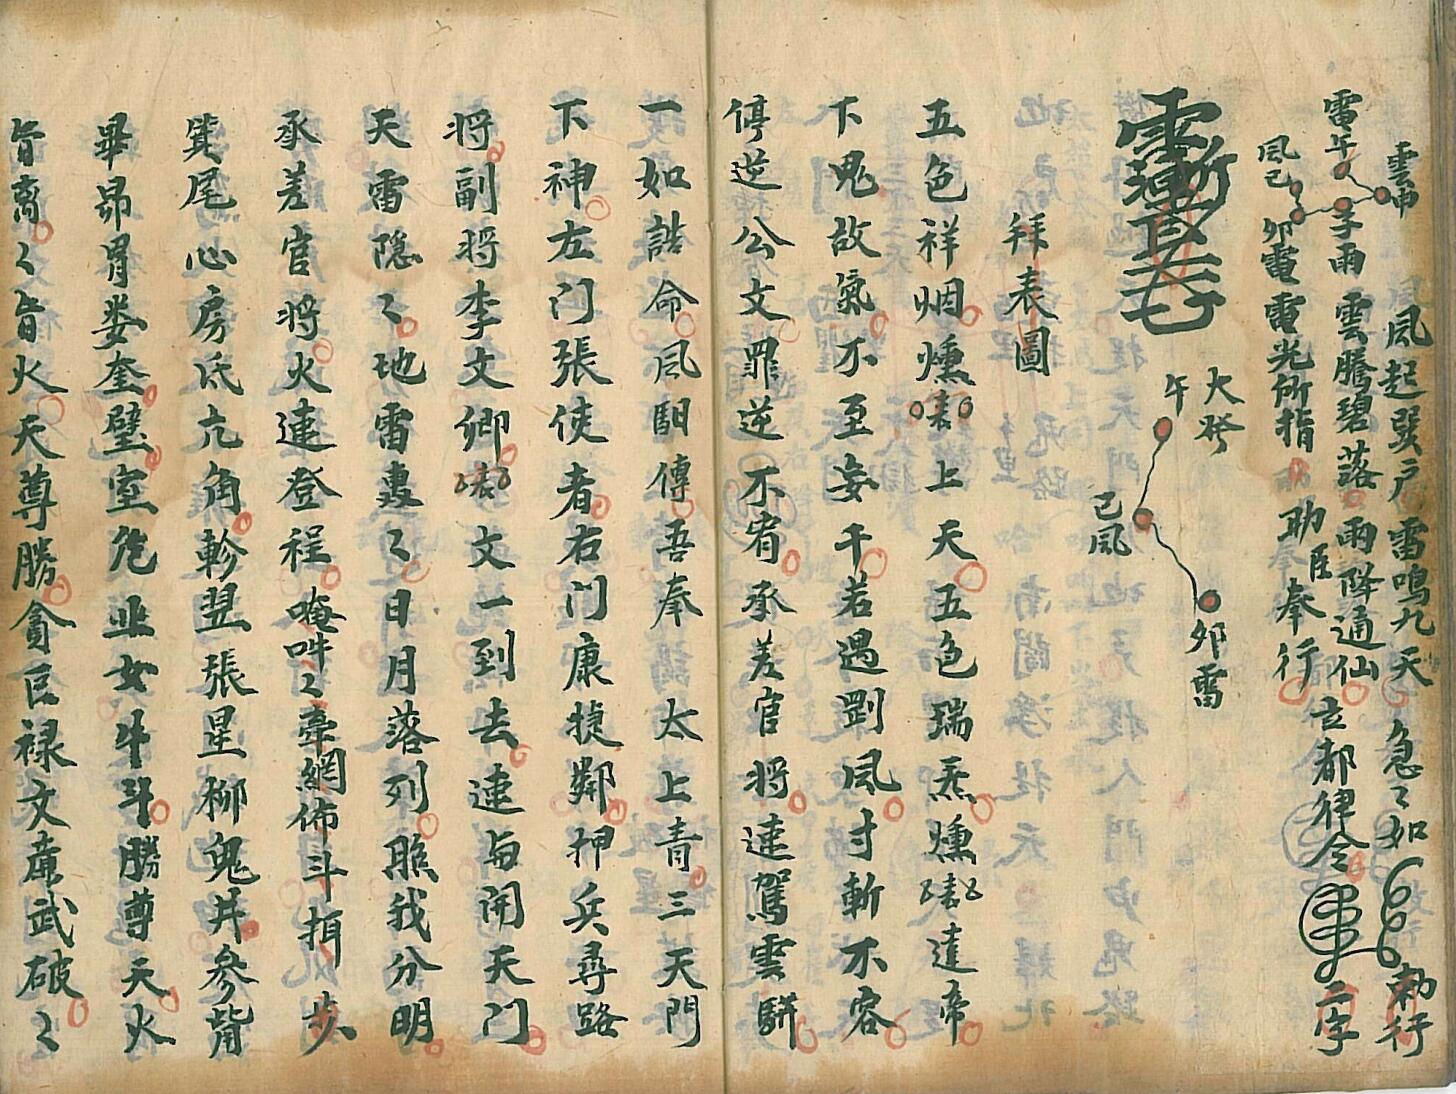 雲申
風起巽戶雷鳴九天
急〻如
勑行
雷午
子雨
雲騰碧落雨降通仙
玄都律令
二字
風己
卯電
電光所指
助臣奉行
大癸
午
己風
卯雷
拜表圖
五色祥烟燻
上天五色瑞炁燻
達帝
下鬼故氣不至妄干若遇劉風寸斬不容
停逆公文罪逆不宥承差官將速駕雲騈
一如誥命風馹傳吾奉太上青三天門
下神左门張使者右门康捷鄰押兵尋路
將副將李文卿
文一到去速与開天门
天雷隐〻地雷轟〻日月落列照我分明
承差官將火速登程唵吽〻牽網佈斗拑步
箕尾心房氐亢角軫翌張星柳鬼井參觜
畢昴胃娄奎壁室危虚女牛斗勝尊天火
旨离〻旨火天尊勝貪巨禄文廉武破〻